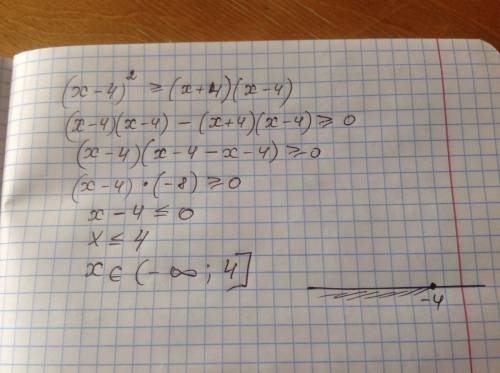 (x-4)² ≥ (x+4)(x-4)
(x-4)(x-4) - (x+4)(x-4) ≥ 0
(x-4)(x-4-x-4) ≥ 0
(x-4)·(-8) ≥ 0
x-4 ≤ 0
x ≤ 4
x ∈ (-∞; 4]
-4